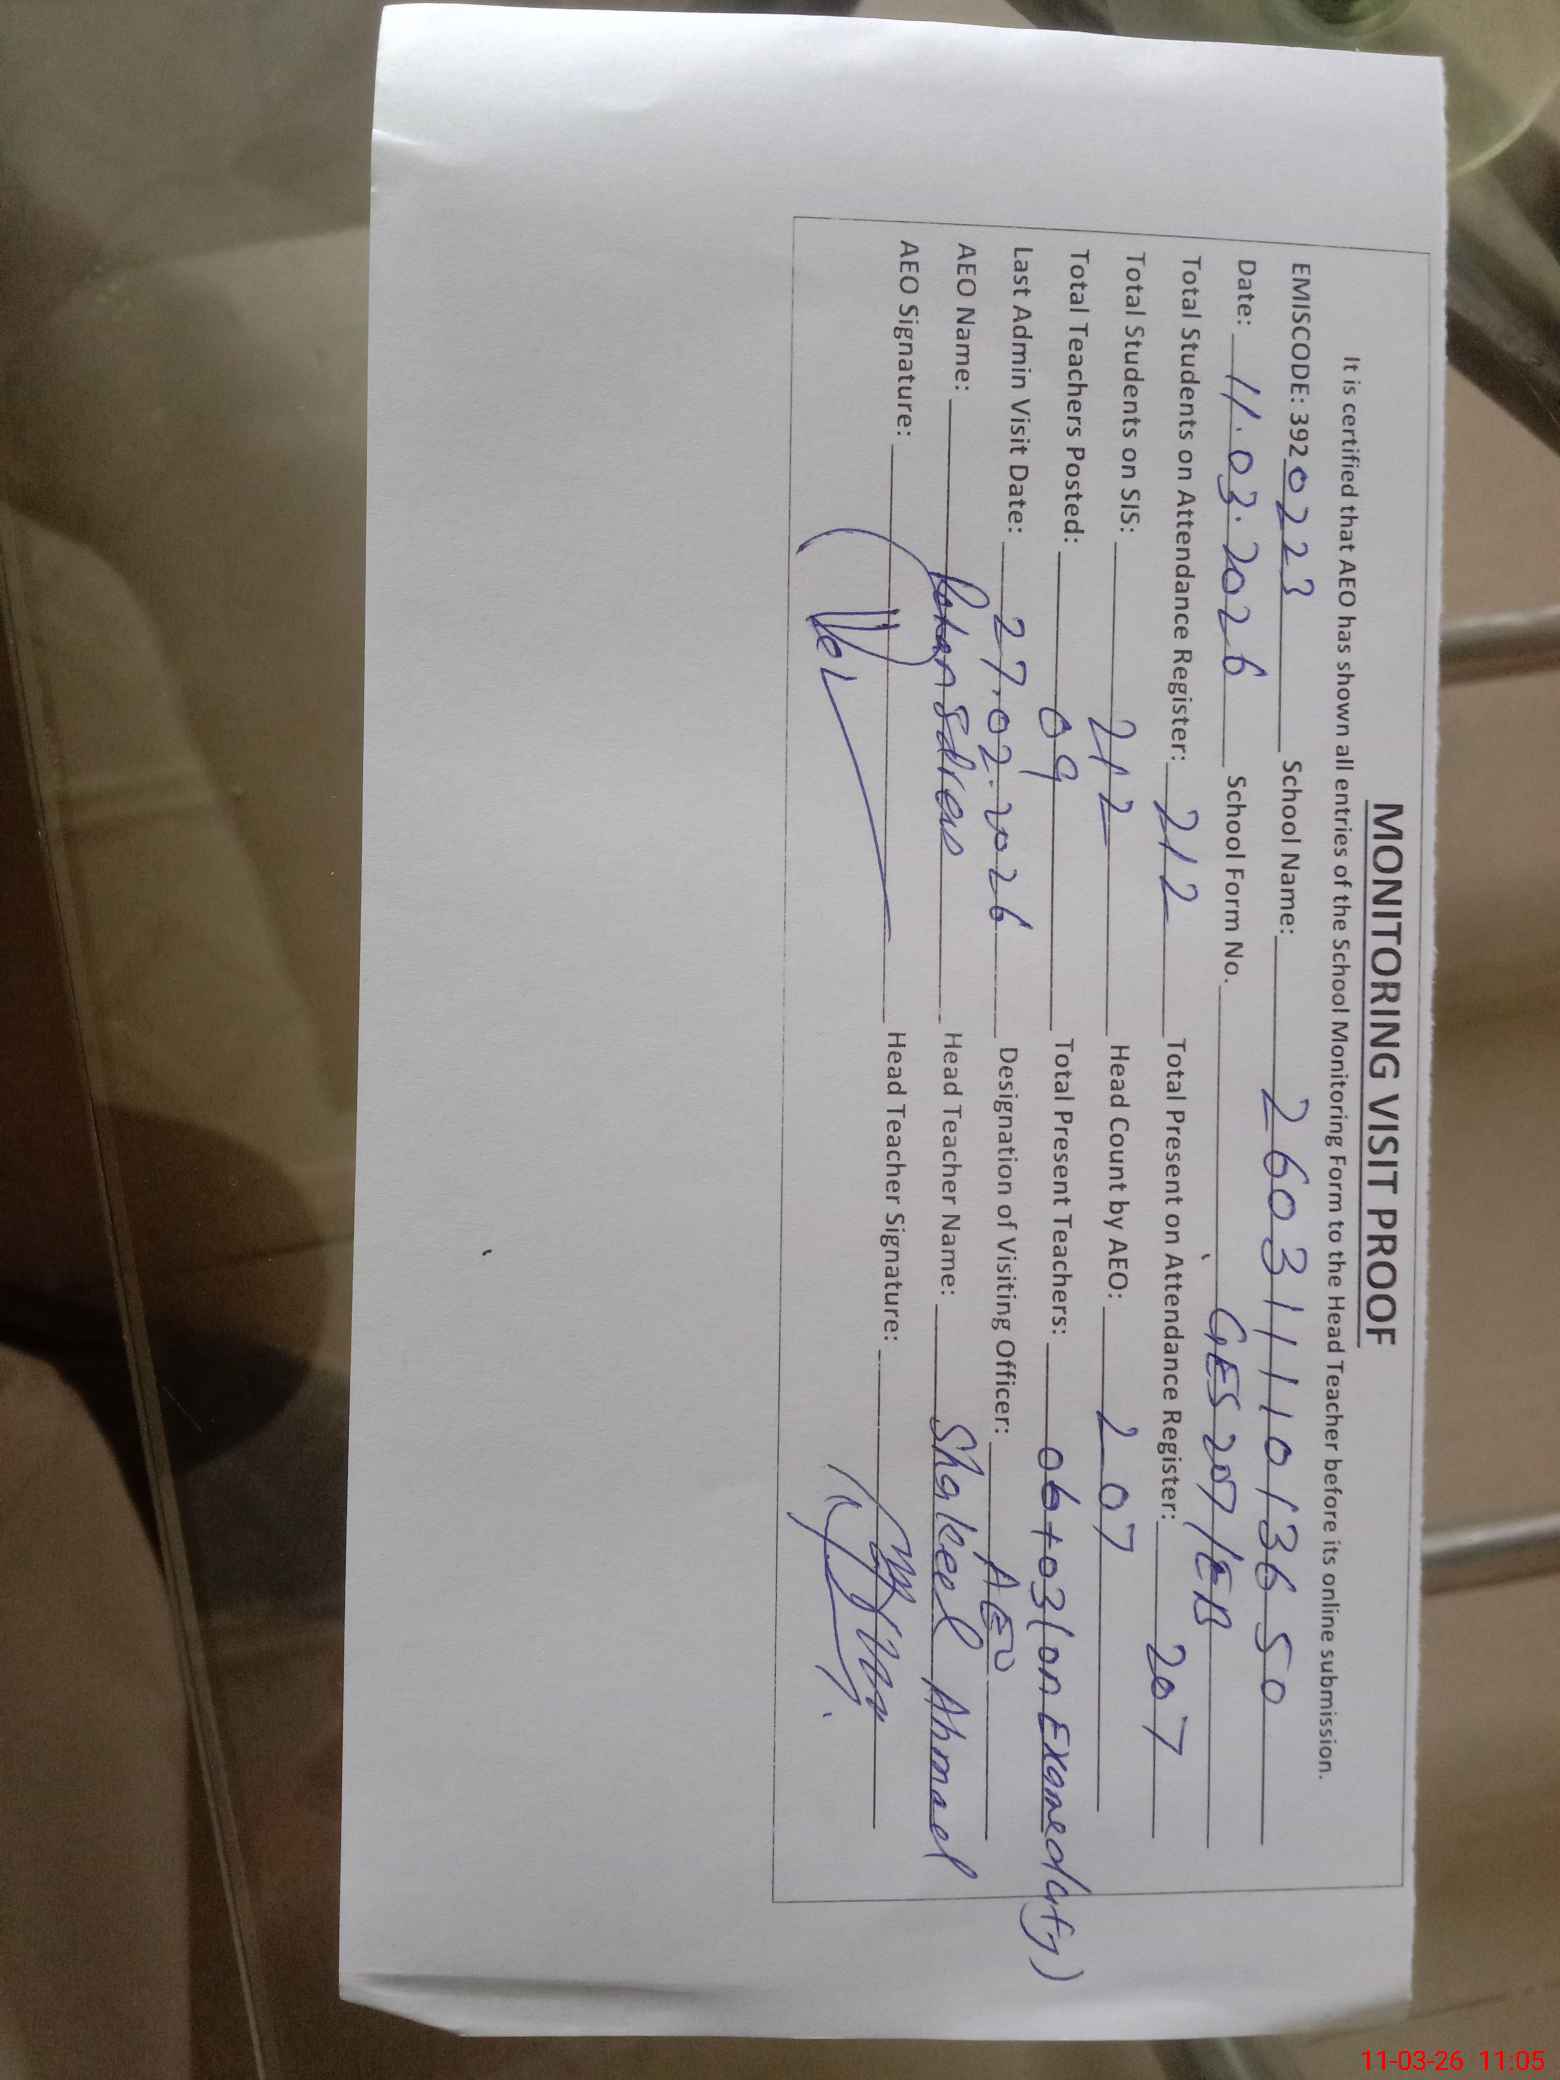 MONITORING VISIT PROOF
It is certified that AEO has shown all entries of the School Monitoring Form to the Head Teacher before its online submission.
EMISCODE: 3920223 School Name: 2603111013650
Date: 11.03.2026 School Form No. GES 207/EB
Total Students on Attendance Register: 212 Total Present on Attendance Register: 207
Total Students on SIS: 212 Head Count by AEO: 207
Total Teachers Posted: 09 Total Present Teachers: 06+03(on Exame duty)
Last Admin Visit Date: 27.02.2026 Designation of Visiting Officer: AEO
AEO Name: Head Teacher Name: Shakeel Ahmad
AEO Signature: Head Teacher Signature:
11-03-26 11:05